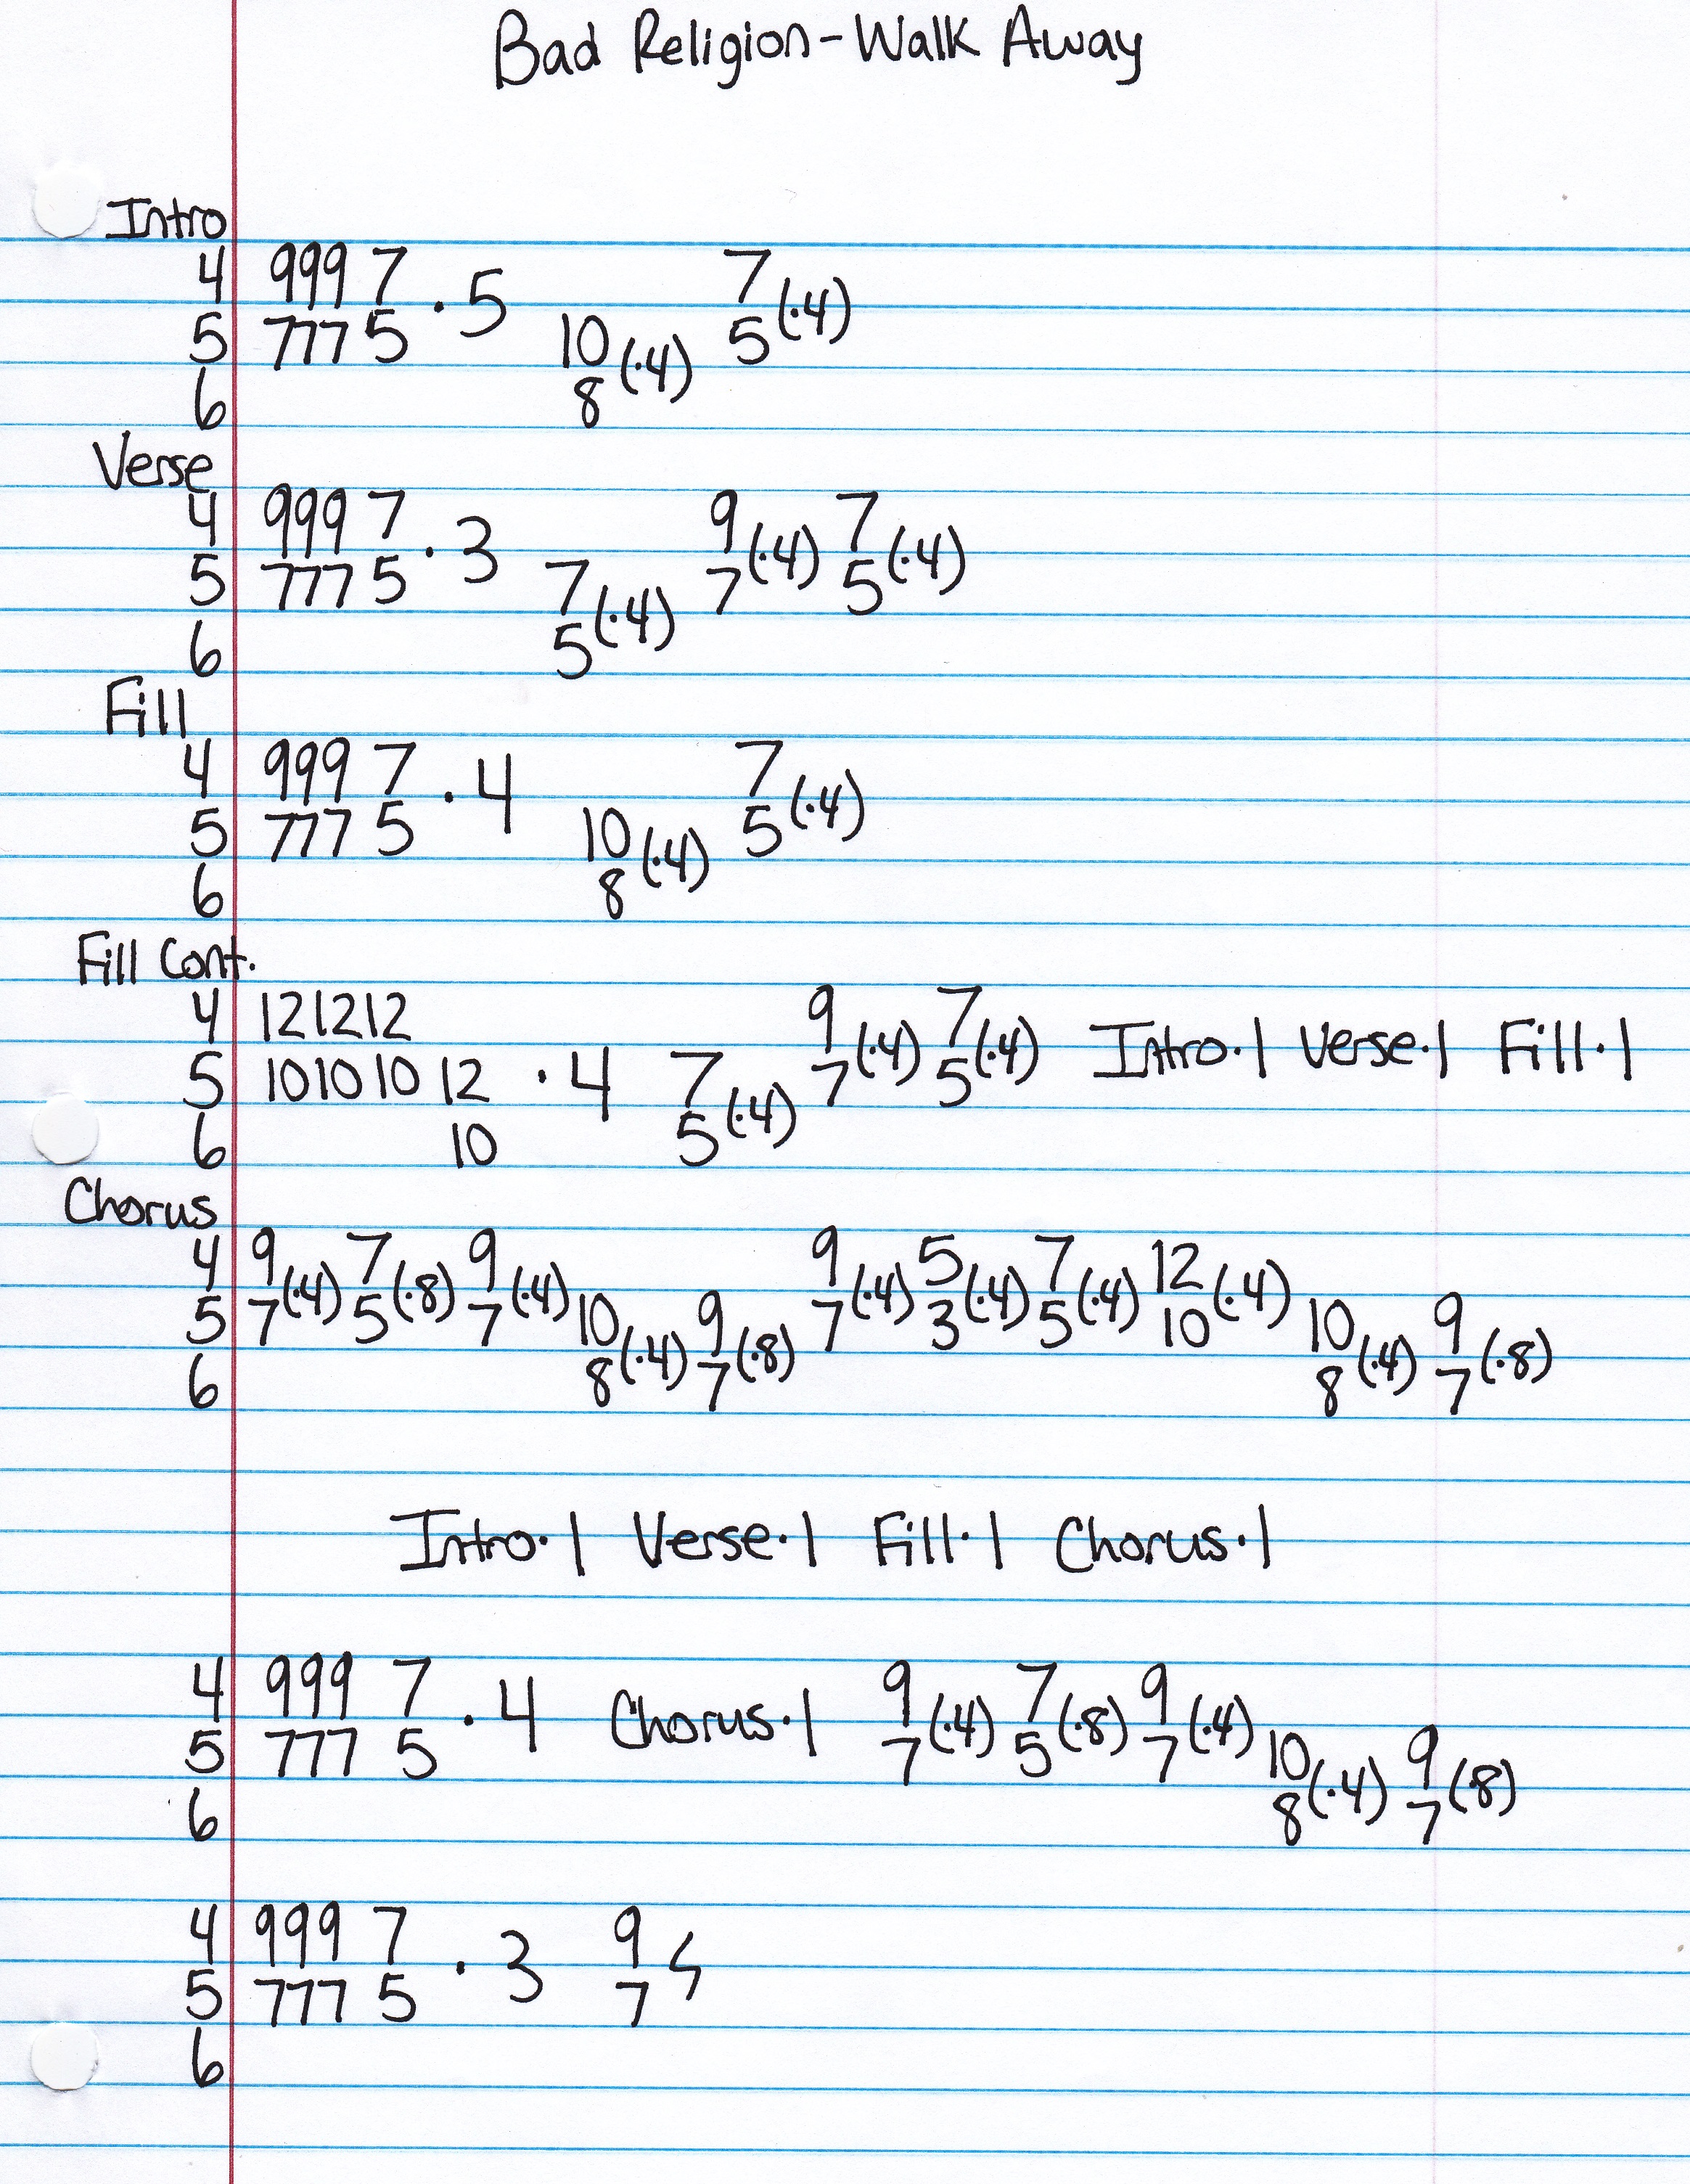 Bad Religion - Walk Away
Intro
4 999 7 · 5 7 (·4)
5 777 5 10 (·4) 5
6 8
Verse
4 999 7 · 3 9 (·4) 7 (·4)
5 777 5 7 (·4) 7 5
6 5
Fill
4 999 7 · 4 7 (·4)
5 777 5 10 (·4) 5
6 8
Fill Cont.
4 121212 9 (·4) 7 (·4) Intro·1 Verse·1 Fill·1
5 101010 12 · 4 7 (·4) 7 5
6 10 5
Chorus
4 9 (·4) 7 (·8) 9 (·4) 9 (·4) 5 (·4) 7 (·4) 12 (·4)
5 7 5 7 10 (·4) 9 (·8) 7 3 5 10 10 (·4) 9 (·8)
6 8 7 8 7
Intro·1 Verse·1 Fill·1 Chorus·1
4 999 7 · 4 Chorus·1 9 (·4) 7 (·8) 9 (·4)
5 777 5 7 5 7 10 (·4) 9 (·8)
6 8 7
4 999 7 · 3 9
5 777 5 7
6